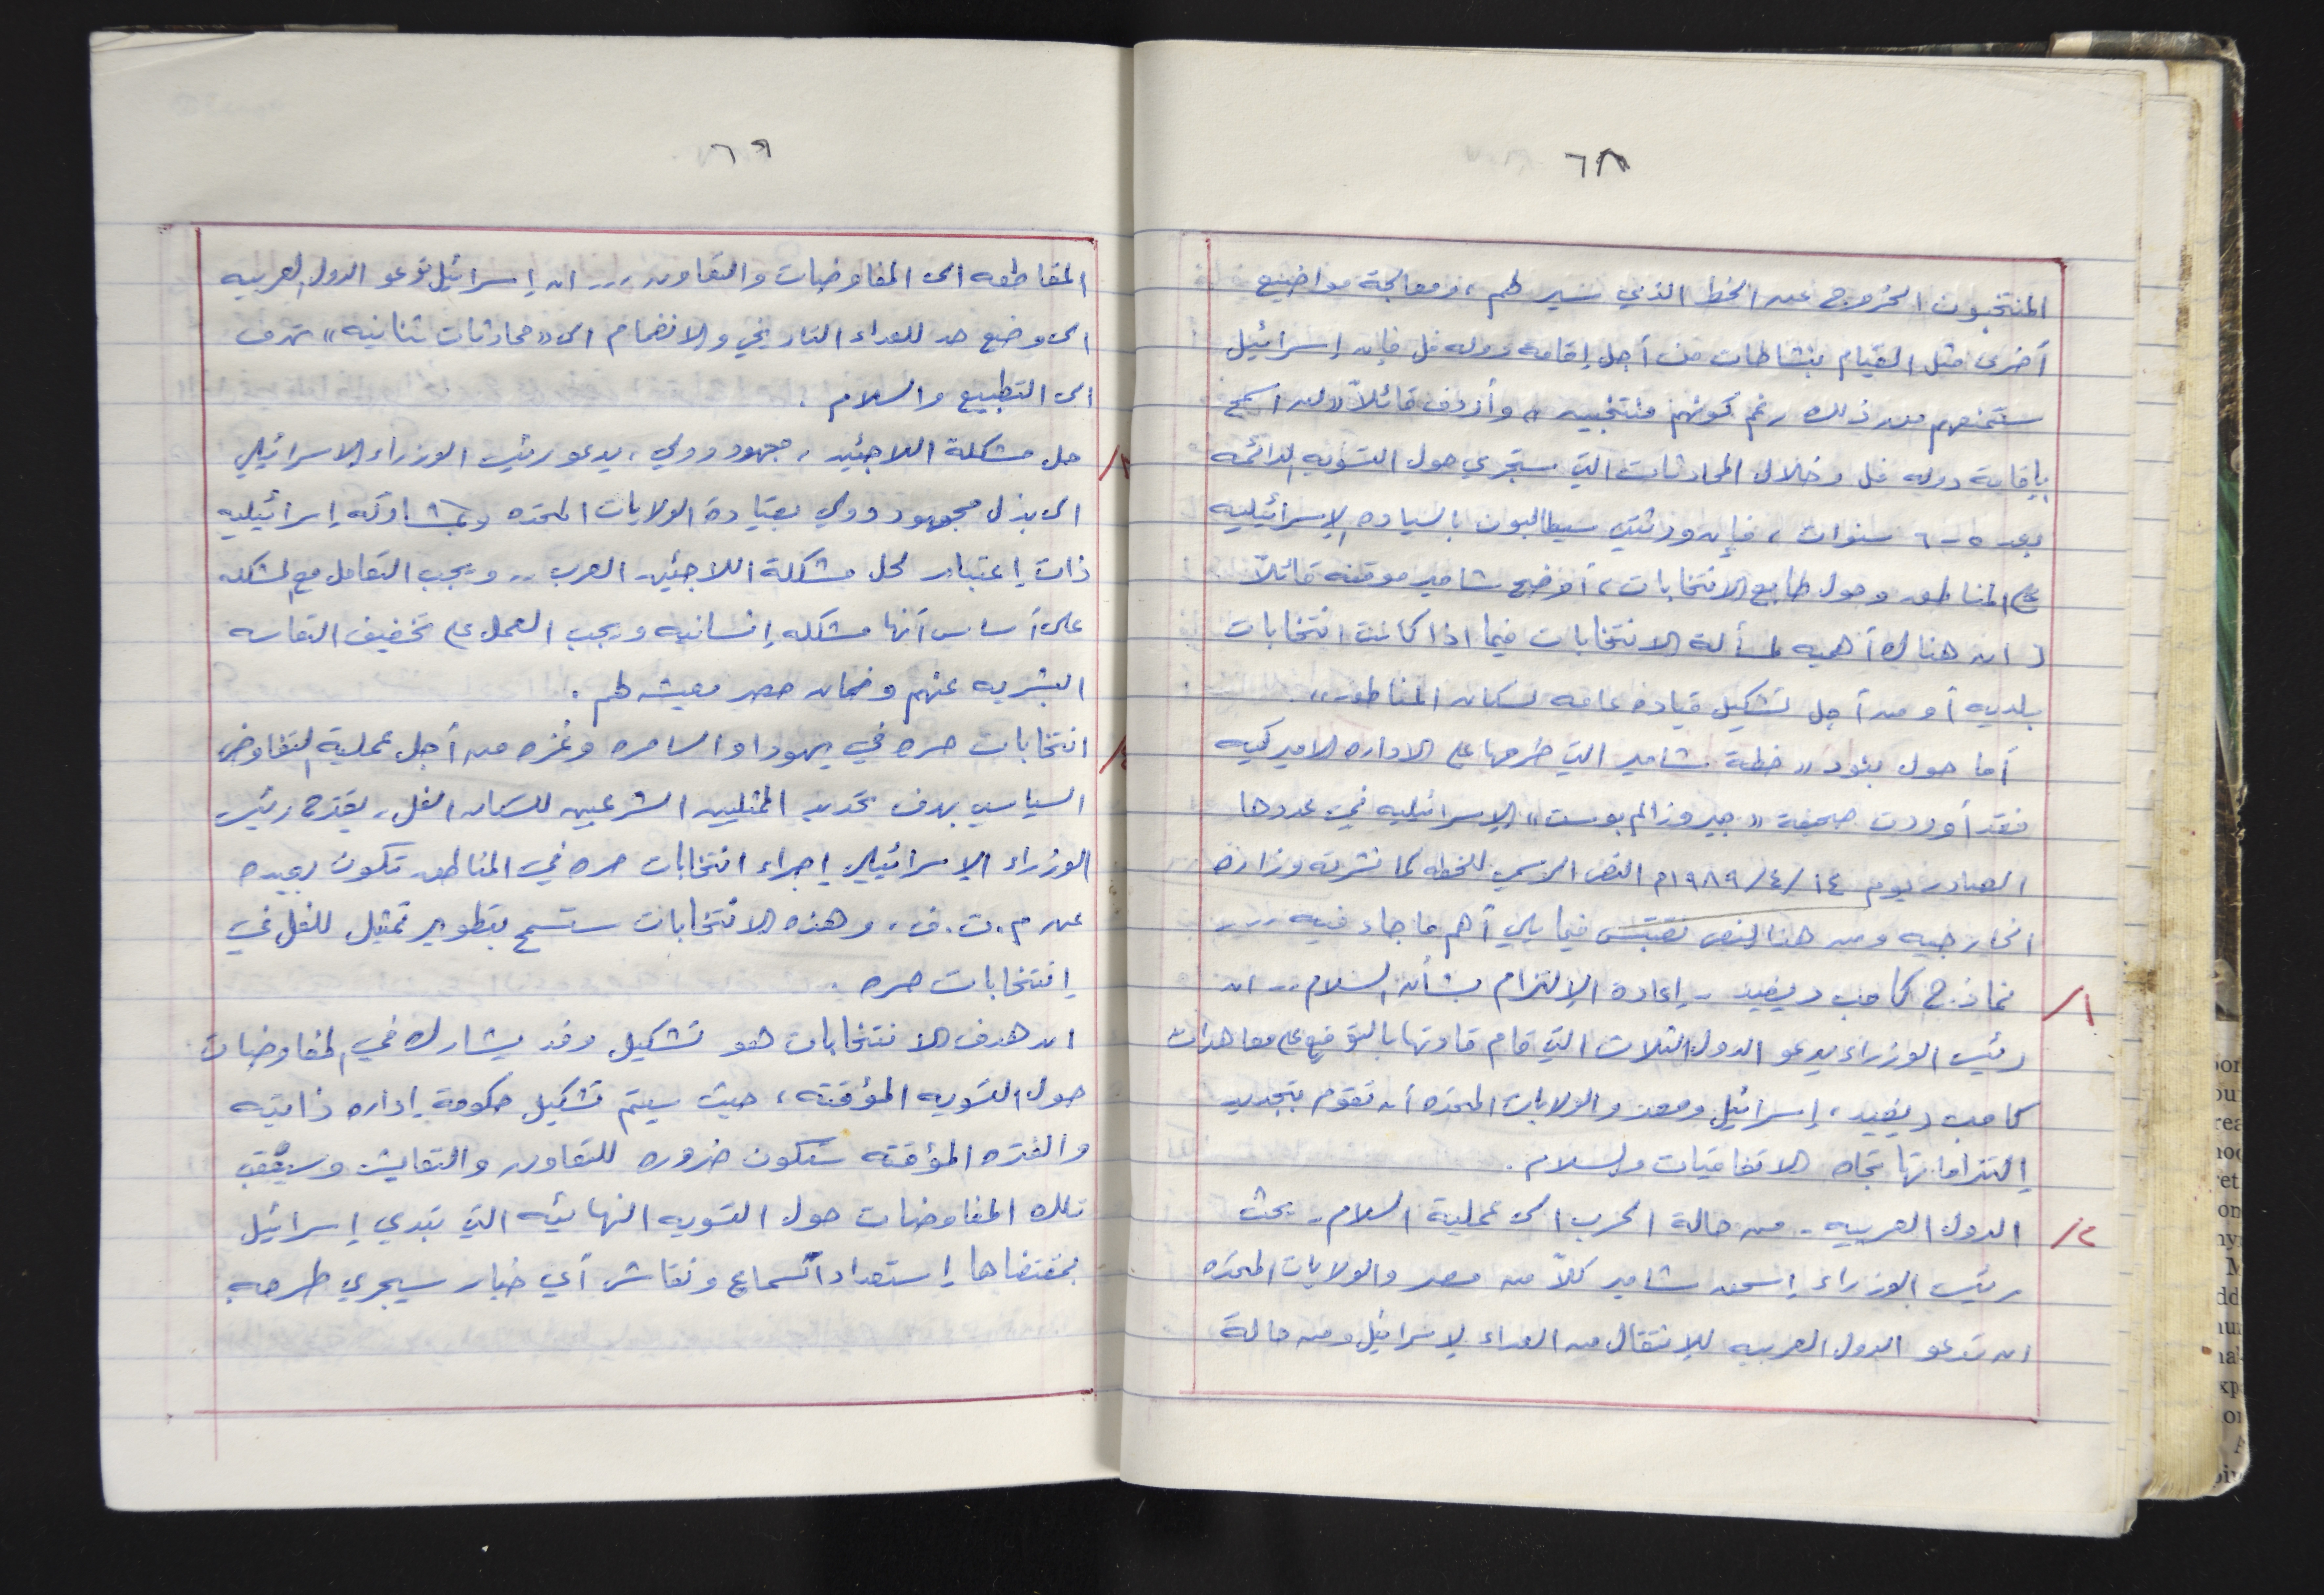 ٦٨
المنتخبون الخروج عن الخط الذي سير لهم، ومعالجة مواضيع
أخرى مثل القيام بنشاطات من أجل إقامة دوله فل فإن إسرائيل
ستمنعهم من ذلك رغم كونهم منتخبين» وأردف قائلاً «لن اسمح
بإقامة دوله فل وخلال المحادثات التي ستجري حول التسويه الدائمه
بعد ٥-٦ سنوات، فإن ورثتي سيطالبون بالسياده الإسرائيليه
على المناطق وحول طابع الانتخابات، أوضح شامير موقفه قائلاً
«ان هناك أهميه لمسألة الانتخابات فيما اذا كانت انتخابات
بلديه أو من أجل تشكيل قياده عامه لسكان المناطق».
أما حول بنود «خطة شامير التي طرحها على الاداره الاميركيه
فقد أوردت صحيفة «جيروزالم بوست» الإسرائيليه في عددها
الصادر يوم ١٤/٤/١٩٨٩م النص الرسمي للخطه كما نشرته وزارة
الخارجيه ومن هنا النص نقتبس فيما يلي أهم ما جاء فيه ....
١/ نماذج كامب ديفيد - إعادة الإلتزام بشأن السلام .. ان
رئيس الوزراء يدعو الدول الثلاث التي قام قادتها بالتوقيع على معاهدات
كامب ديفيد، إسرائيل ومصر والولايات المتحده أن تقوم بتجديد
إلتزاماتها تجاه الاتفاقيات والسلام.
٢/ الدول العربيه - من حالة الحرب الى عملية السلام - يحث
رئيس الوزراء إسحق شامير كلاً من مصر والولايات المتحده
ان تدعو الدول العربيه للإنتقال من العداء لإسرائيل ومن حالة
٦٩
المقاطعه الى المفاوضات والتعاون ... ان إسرائيل تدعو الدول العربيه
الى وضع حد للعداء التاريخي والانضمام الى «محادثات ثنائيه» تهدف
الى التطبيع والسلام.
٣/ حل مشكلة اللاجئين، مجهود دولي، يدعو رئيس الوزراء الاسرائيلي
الى بذل مجهود دولي بقيادة الولايات المتحده وبمشاركه إسرائيليه
ذات إعتبار لحل مشكلة اللاجئين العرب .. ويجب التعامل مع المشكله
على أساس أنها مشكله إنسانيه ويجب العمل على تخفيف التعاسه
البشريه عنهم وضمان مصدر معيشه لهم.
٤/ انتخابات حره في يهودا والسامره وغزه من أجل عملية التفاوض
السياسي بهدف تحديد الممثليين الشرعيين للسكان الفل، يقترح رئيس
الوزراء الإسرائيلي إجراء انتخابات حره في المناطق تكون بعيده
عن م.ت.ف، وهذه الانتخابات ستسمح بتطوير تمثيل للفل في
إنتخابات حره.
ان هدف الانتخابات هو تشكيل وفد يشارك في المفاوضات
حول التسويه المؤقته، حيث سيتم تشكيل حكومة إداره ذاتيه
والفتره المؤقته ستكون ضروره للتعاون والتعايش وسيعقب
تلك المفاوضات حول التسويه النهائيه التي تبدي إسرائيل
بمقتضاها إستعداداً لسماع ونقاش أي خيار سيجري طرحه